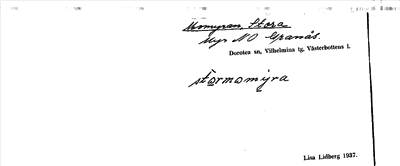 Momyran, Stora
Myr NO Granås.
Dorotea sn, Vilhelmina tg, Västerbottens l.
stormomýra
Lisa Lidberg 1937.